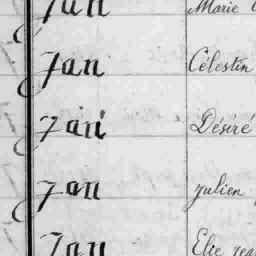 Jan Marie
Jan Célestin
Jan Désiré
Jan Julien
Jan Elie